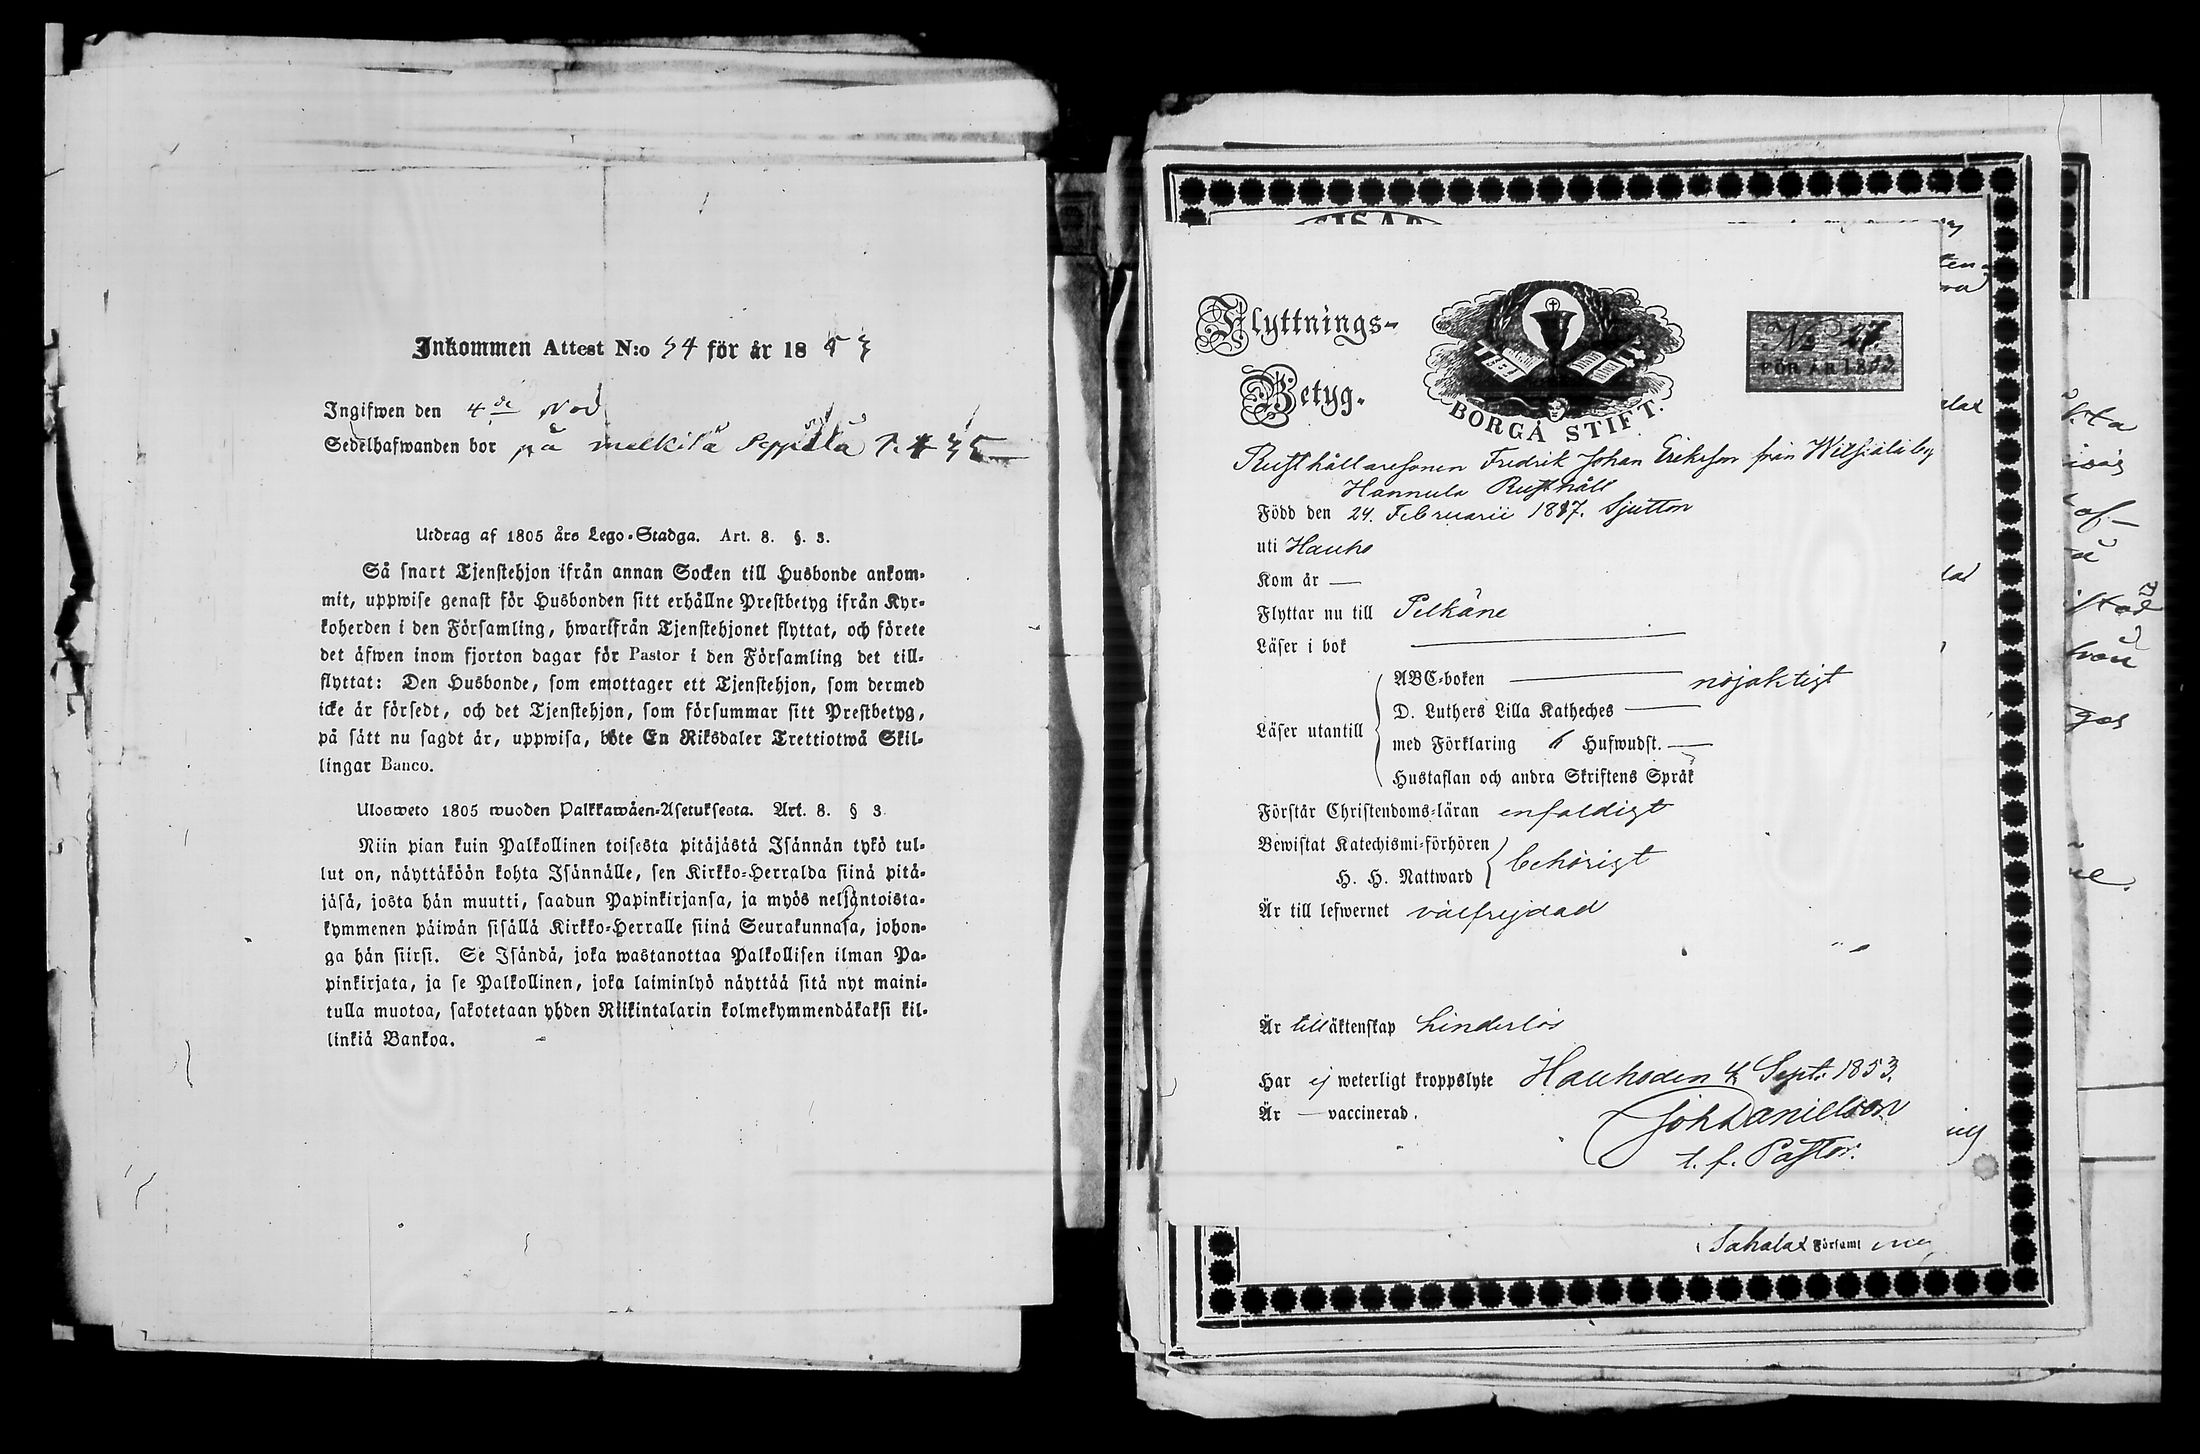 Inkommen Attest N:o 54 för år 1853
Ingifwen den 4de Nov
Sedelhafwanden bor på Mälkilä Seppälä
Utdrag af 1805 års Lego-Stadga. Art. 8. §. 3.
Så snart Tjenstehjon ifrån annan Socken till Husbonde ankom-
mit, uppwise genast för Husbonden sitt erhållne Prestbetyg ifrån Kyr-
koherden i den Församling, hwarifrån Tjenstehjonet flyttat, och förete
det äfwen inom fjorton dagar för Pastor i den Församling det till-
flyttat: Den Husbonde, som emottager ett Tjenstehjon, som dermed
icke är försedt, och det Tjenstehjon, som försummar sitt Prestbetyg,
på sätt nu sagdt är, uppwisa, böte En Riksdaler Trettiotwå Skil-
lingar Banco.
Ulosweto 1805 wuoden Palkkawäen-Asetuksesta. Art. 8. § 3
Niin pian kuin Palkollinen toisesta pitäjästä Isännän tykö tul-
lut on, näyttäköön kohta Isännälle, sen Kirkko-Herralda siinä pitä-
jäsä, josta hän muutti, saadun Papinkirjansa, ja myös neljäntoista-
kymmenen päiwän sisällä Kirkko-Herralle siinä Seurakunnasa, johon-
ga hän siirsi. Se Isändä, joka wastanottaa Palkollisen ilman Pa-
pinkirjata, ja se Palkollinen, joka laiminlyö näyttää sitä nyt maini-
tulla muotoa, sakotetaan yhden Riikintalarin kolmekymmendäkaksi kil-
linkiä Bankoa.
Flyttnings-
Betyg.
BORGÅ STIFT.
No 27.
FÖR ÅR 1853
Rusthållaresonen Fredrik Johan Eriksson från Wilsiälä by
Hannula Rusthåll
Född den 24. Februarii 1817. Sjutton
uti Hauho
Kom år —
Flyttar nu till Pelkäne
Läser i bok —
Läser utantill
ABC-boken — nöjaktigt
D. Luthers Lilla Katheches —
med Förklaring 6 Hufwudst. —
Hustaflan och andra Skriftens Språk
Förstår Christendoms-läran enfaldigt
Bewistat Katechismi-förhören
H. H. Nattward behörigt
Är till lefwernet välfrejdad
Är till äktenskap hinderlös
Har ej weterligt kroppslyte Hauho den 4 Sept. 1853.
Är — vaccinerad.
Joh Danielson
t. f. Pastor.
Sahalax Församl